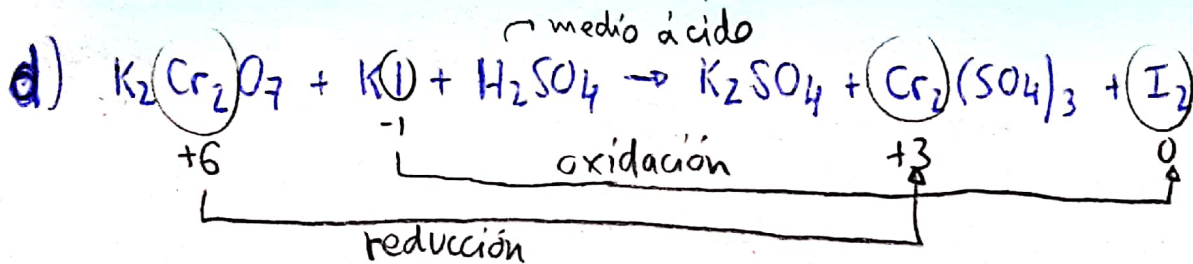 medio ácido
d) K₂(Cr₂)O₇ + KI + H₂SO₄ → K₂SO₄ + Cr₂(SO₄)₃ + I₂
+6 -1 +3 0
oxidación
reducción